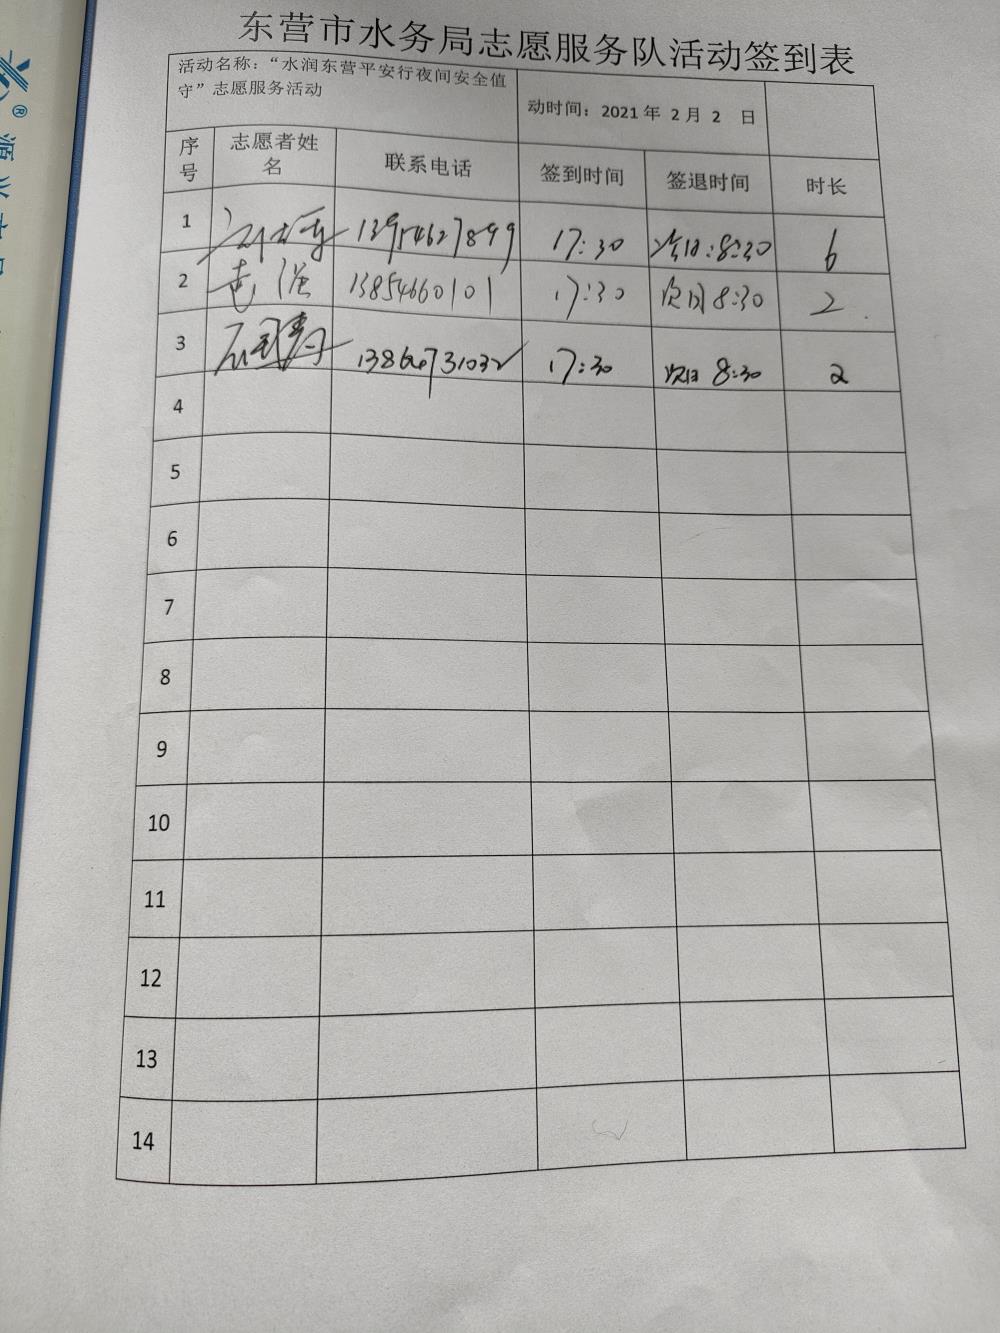 东营市水务局志愿服务队活动签到表
活动名称：“水润东营平安行夜间安全值
守”志愿服务活动
动时间：2021 年 2 月 2 日
序号 志愿者姓名 联系电话 签到时间 签退时间 时长
1 13954627899 17:30 次日:8:30 6
2 13854660101 17:30 次日8:30 2
3 17:30 次日 8:30 2
4
5
6
7
8
9
10
11
12
13
14